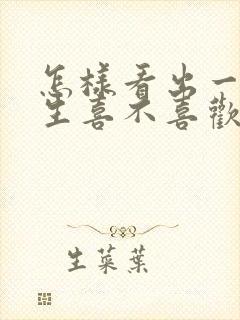 怎樣看出一
生喜不喜歡
生菜葉